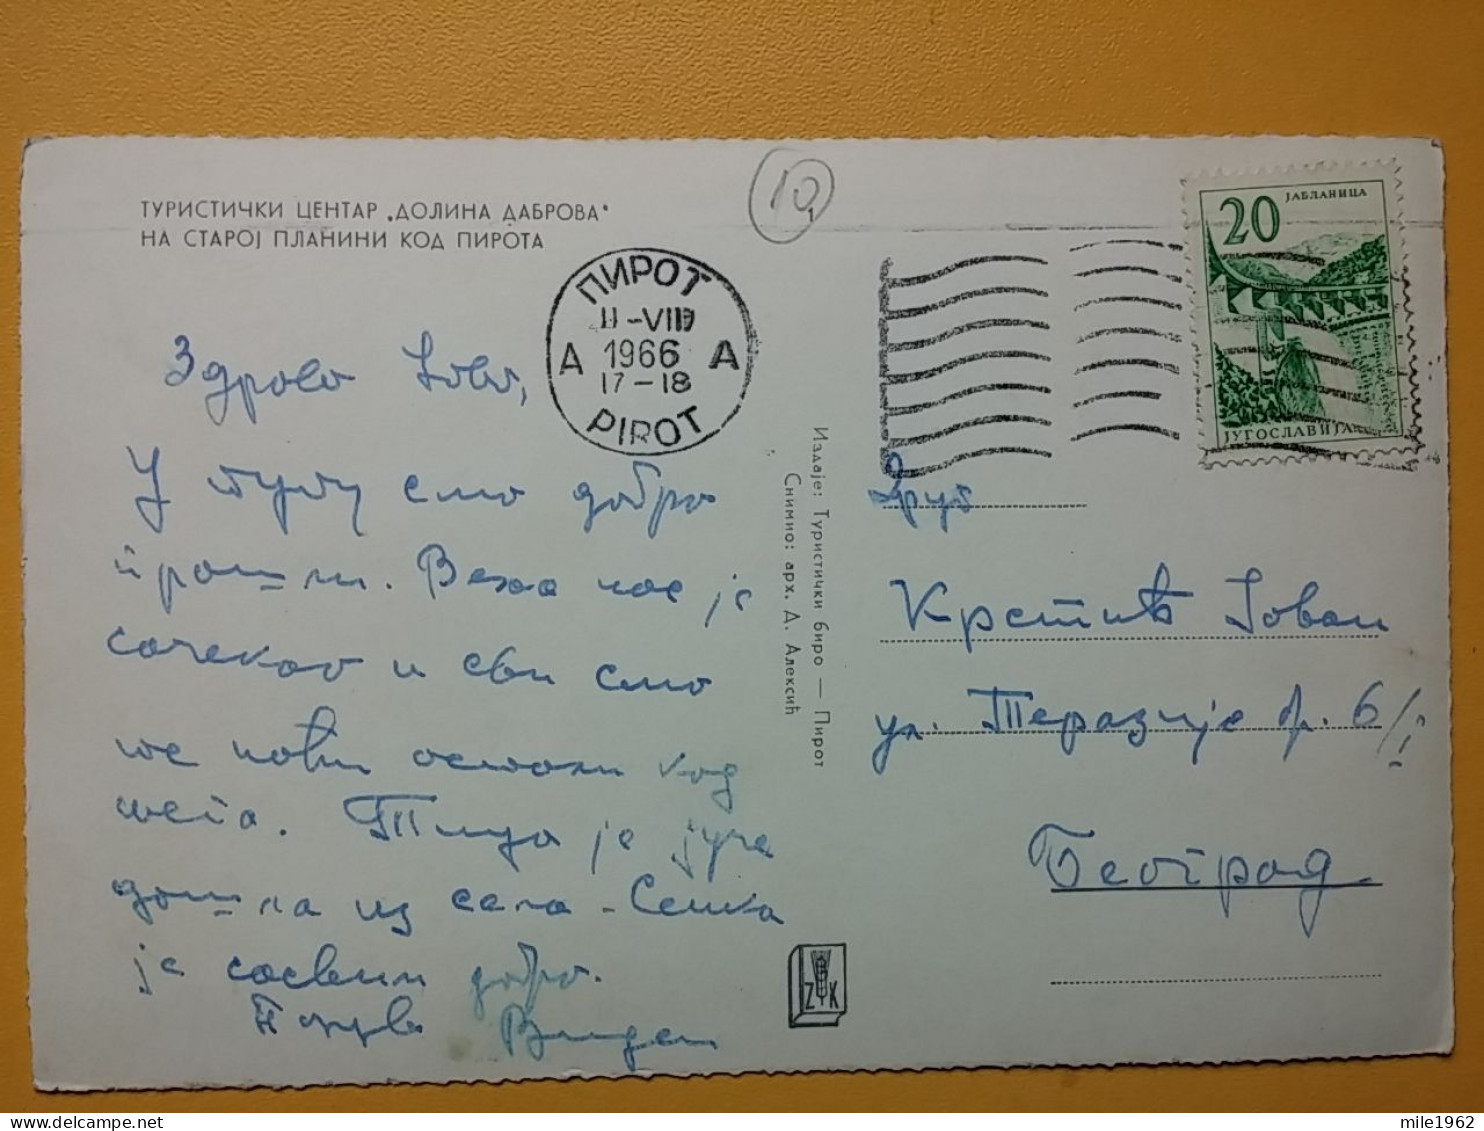 ТУРИСТИЧКИ ЦЕНТАР „ДОЛИНА ДАБРОВА"
НА СТАРОЈ ПЛАНИНИ КОД ПИРОТА
10
ПИРОТ
II-VIII
1966
17-18
A A
PIROT
20
ЈАБЛАНИЦА
ЈУГОСЛАВИЈА
Здраво Јово,
У путу смо добро
прошли. Века нас је
сачекао и сви смо
те ноћи остали код
њега. Тица је јуче
дошла из села. Сека
је сасвим добро.
Поздрав
Издаје: Туристички биро — Пирот
Снимио: арх. Д. Алексић
ZK
Друг
Крстић Јован
ул. Теразије бр. 6/I
Београд
mile1962